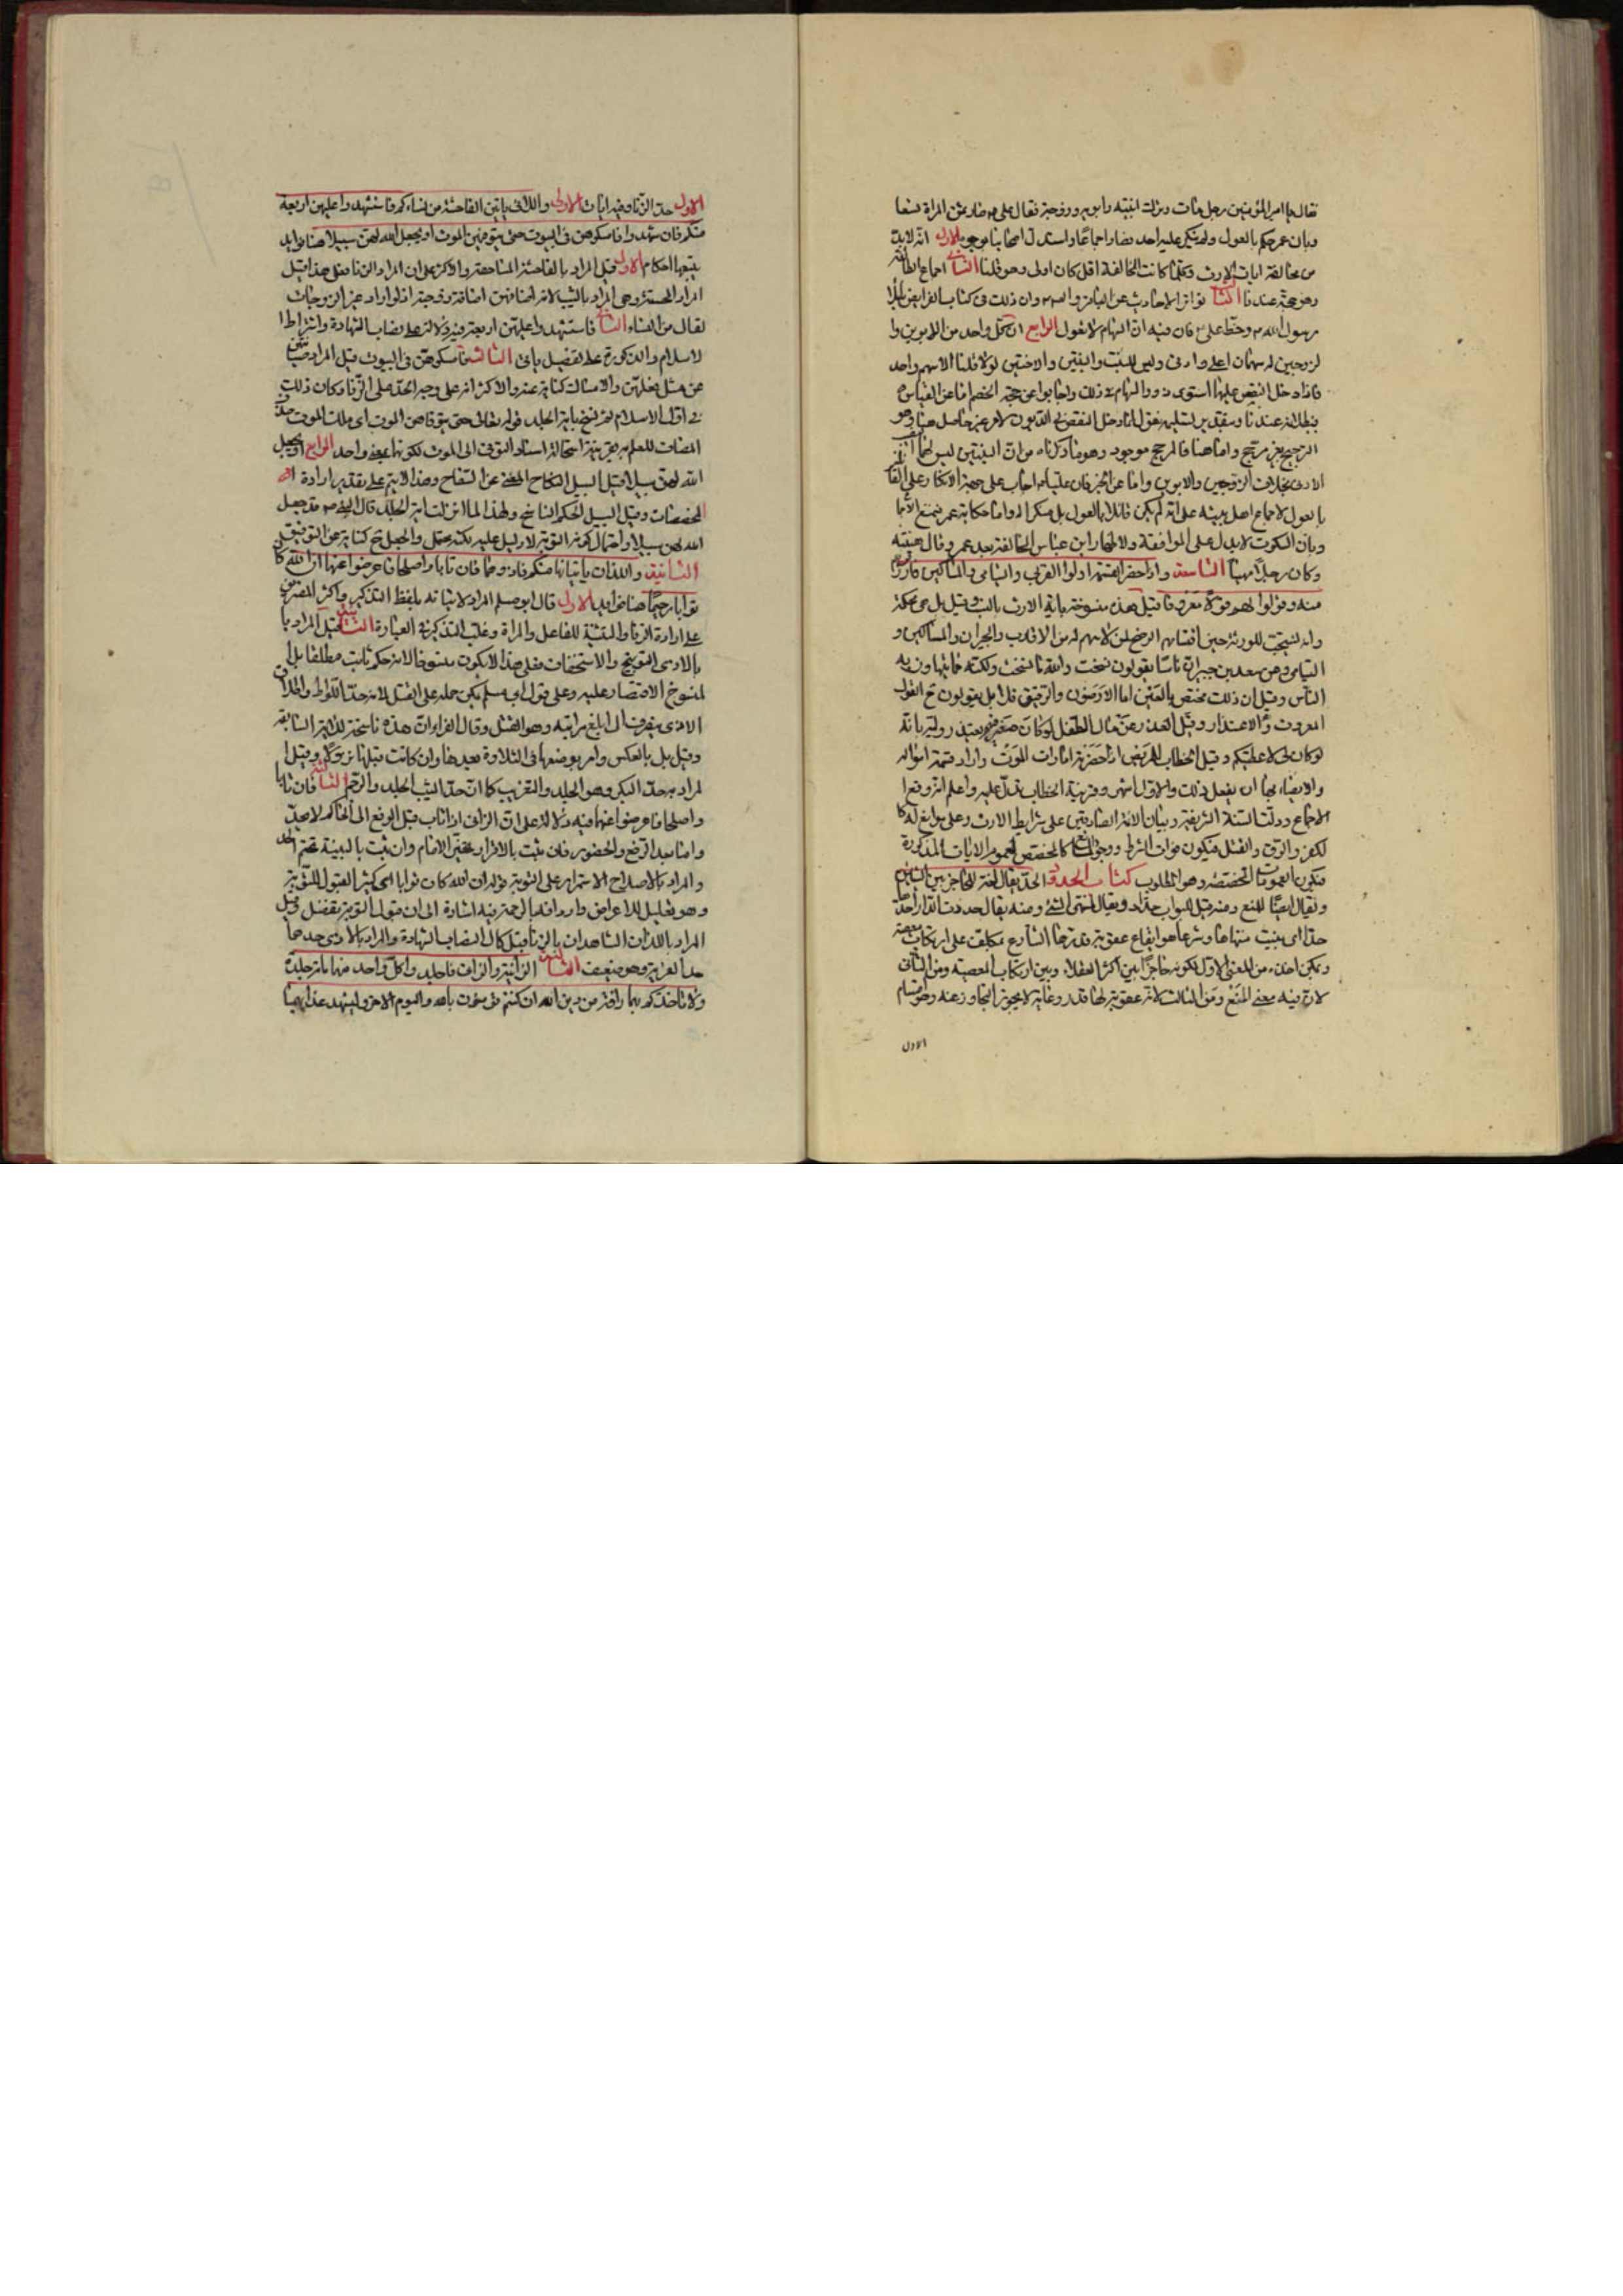 فقال يا امير المؤمنين رجل مات وترك ابنتيه وابويه وزوجة فقال علي صار ثمن المراة تسعا
وبان عمر حكم بالعول ولم ينكر عليه احد فصار اجماعا واستدل اصحابنا بوجوه الاول انه لابد
من مخالفة ايات الارث وكلما كانت المخالفة اقل كان اولى وهو قلنا الثاني اجماع الطائفة
وهو حجة عندنا الثالث تواتر الاحاديث عن الباقر وان ذلك في كتاب الفرايض املاء
رسول الله وخط علي فان فيه ان السهام لا تعول الرابع ان كل واحد من الابوين وا
لزوجين له سهمان اعلى وادنى وليس للبنت والبنتين والاختين لولا قلنا الا سهم واحد
فاذا دخل النقص عليها استوى ذووا السهام في ذلك واجابوا عن حجة الخصم اما عن القياس
فبطلانه عندنا وبتقدير تسليمه نقول انما دخل النقص في الديون لامر غير حاصل هنا وهو
الترجيح بغير مرجح واما هنا فالمرجح موجود وهو ما ذكرناه من ان البنتين ليس لهما
الادنى بخلاف الزوجين والابوين واما عن الخبر فان عليا اجاب على جهة الانكار على القا
بالعول لا جماع اهل بيته على انه لم يكن قائلا بالعول بل منكرا له واما حكاية عمر فنمنع الاجما
وبان السكوت لا يدل على الموافقة ولاظهار ابن عباس المخالفة بعد عمر وقال هبته
وكان رجلا مهيبا التاسعة واذا حضر القسمة اولوا القربى واليتامى والمساكين فارزقوهم
منه وقولوا لهم قولا معروفا قيل هذه منسوخة باية الارث بالنسب وقيل بل هي محكمة
وانه يستحب للورثة حين اقتسامهم الرضخ لمن لا سهم له من الاقارب والجيران والمساكين و
اليتامى وعن سعيد بن جبير ان ناسا يقولون نسخت والله ما نسخت ولكنه مما يتهاون به
الناس وقيل ان ذلك مختص بالعين اما الارضون والرقيق فلا بل يقولون لهم القول
المعروف والاعتذار وقيل العذر عن مال الطفل لو كان صغير فيهم يعتذر وليه بانه
لو كان لي لاعطيتكم وقيل الخطاب للمريض اذا حضرته امارات الموت واراد قسمة امواله
والايصاء بها ان يفعل ذلك والاول اشهر وقرينة الخطاب تدل عليه واعلم انه وقع ا
لاجماع ودلت السنة الشريفة وبيان الائمة الصادقين على شرايط الارث وعلى موانع له كا
لكفر والرق والقتل فيكون فوات الشرط ووجود المانع كالمخصص لعموم الايات المذكورة
فتكون العمومات المخصصة وهو المطلوب كتاب الحدود الحد يقال لغة للحاجز بين الشيئين
ويقال ايضا للمنع ومنه قيل للبواب حداد ويقال لمنتهى الشئ ومنه يقال حددت الدار احدها
حدا اي بينت منتهاها وشرعا هو ايقاع عقوبة قدرها الشارع مكلف على ارتكاب معصية
ويمكن اخذه من المعنى الاول لكونه حاجزا بين اكثر العقلاء وبين ارتكاب المعصية ومن الثاني
لان فيه معنى المنع ومن الثالث لانه عقوبة لها قدر وغاية لا يجوز التجاوز عنه وهو اقسام
الاول
الاول حد الزنا وفيه ايات الاولى واللاتي ياتين الفاحشة من نسائكم فاستشهدوا عليهن اربعة
منكم فان شهدوا فامسكوهن في البيوت حتى يتوفيهن الموت او يجعل الله لهن سبيلا هنا فوايد
يتبعها احكام الاولى قيل المراد بالفاحشة المساحقة والاكثر على ان المراد الزنا فعلى هذا قيل
المراد المحصنة وهي المراد بالثيب لانه اضافهن اضافة زوجية اذ لو اراد غير الزوجات
لقال من النساء الثانية فاستشهدوا عليهن اربعة فيه دلالة على نصاب الشهادة واشتراط ا
لاسلام والذكورة على تفصيل ياتي الثالثة فامسكوهن في البيوت قيل المراد صيانتهن
عن مثل فعلهن والامساك كناية عنه والاكثر انه على وجه الحد على الزنا وكان ذلك
في اول الاسلام ثم نسخ باية الجلد قوله تعالى حتى يتوفاهن الموت اي ملك الموت حذف
المضاف للعلم به بقرينة استحالة اسناد التوفي الى الموت لكونهما بمعنى واحد الرابعة او يجعل
الله لهن سبيلا قيل السبيل النكاح المغني عن السفاح وهذا لا يتم على تقدير ارادة
المحصنات وقيل السبيل الحكم الناسخ ولهذا لما نزلت اية الجلد قال النبي قد جعل
الله لهن سبيلا واحتمال كونه التوبة لا دليل عليه لكنه محتمل والجعل ح كناية عن التوفيق
الثانية واللذان ياتيانها منكم فاذوهما فان تابا واصلحا فاعرضوا عنهما ان الله كا
توابا رحيما هنا فوايد الاولى قال ابو مسلم المراد لاتيانه بلفظ التذكير واكثر المفسرين
على ارادة الزنا والتثنية للفاعل والمراة وغلب التذكير في العبارة الثانية قيل المراد با
بالاذى التوبيخ والاستخفاف فعلى هذا لا يكون منسوخا لانه حكم ثابت مطلقا بل ا
لمنسوخ الاقتصار عليه وعلى قول ابو مسلم يمكن حمله على القتل لانه حد اللواط واطلاق
الاذى ينصرف الى ابلغ مراتبه وهو القتل وقال الفراء ان هذه ناسخة للاية السابقة
وقيل بل بالعكس وامر بوضعها في التلاوة بعدها وان كانت قبلها نزولا وقيل ا
لمراد به حد البكر وهو الجلد والتغريب كما ان حد الثيب الجلد والرجم الثالثة فان تابا
واصلحا فاعرضوا عنهما فيه دلالة على ان الزاني اذا تاب قبل الرفع الى الحاكم لا يحد
واما بعد الرفع والحضور فان ثبت بالاقرار تخير الامام وان ثبت بالبينة تحتم الحد
والمراد بالاصلاح الاستمرار على التوبة قوله ان الله كان توابا اي كثير القبول للتوبة
وهو تعليل للاعراض واردافه بالرحمة فيه اشارة الى ان قبول التوبة تفضل وقيل
المراد باللذان الشاهدان بالزنا قبل كمال نصاب الشهادة والمراد بالاذى حدهما
حد الفرية وهو ضعيف الثالثة الزانية والزاني فاجلدوا كل واحد منهما مائة جلدة
ولا تاخذكم بهما رافة من دين الله ان كنتم تؤمنون بالله واليوم الاخر وليشهد عذابهما